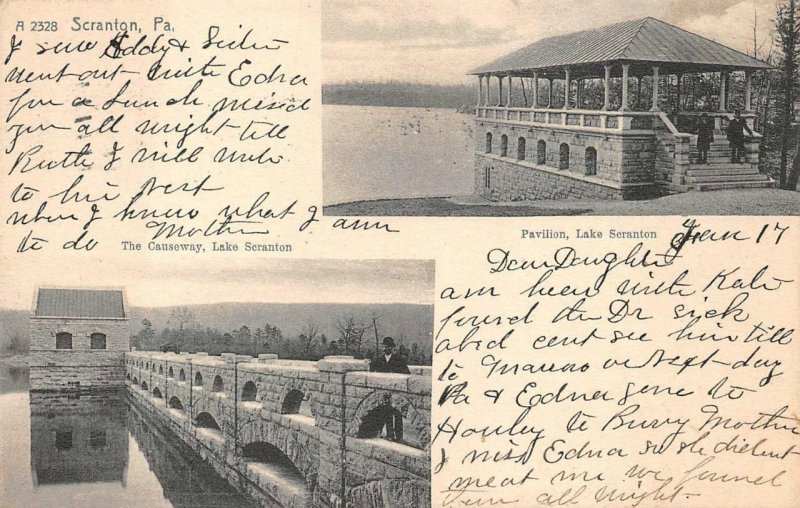 A 2328 Scranton, Pa.
Jan 17
Dear Daughter I
am here with Kate
found the Dr sick
abed cent see him till
to morrow or next day
Pa & Edna gone to
Honley to Bury Mother
I miss Edna so she dident
meat me we found
them all right
I saw Eddy &
went out with Edna
for a Lunch miss'd
you all right till
Ruth I will write
to his next
when I know what I am
to do Mother
The Causeway, Lake Scranton
Pavilion, Lake Scranton